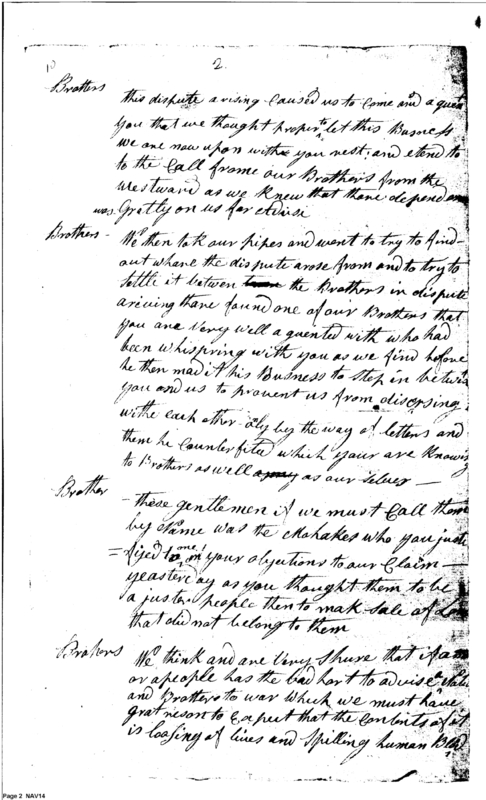 10
2.
Brothers
this dispute arising Caused us to Come and a quent
you that we thought proper to let this Busness
we are now upon with you rest; and etend to
to the Call frome our Brothers from the
westward as we knew that thare depend
was. Gratly on us for advise
Brothers -
We then tok our pipes and went to try to find
out whare the dispute arose from and to try to
settle it betwen the Brothers in dispute
ariving thare found one of our Brothers that
you are Very well a quented with who had
been whispring with you as we find before
he then mad it his Busness to step in betwix
you and us to prevent us from discosing
withe each other oly by the way of letters and
them he Counterfited which your are knowing
to Brothers as well as our selves —
Brother
- these gentlemen if we must Call them
by Name was the Mohakes who you juste
= fijed to me in your objections to our Claim —
yeasterday as you thought them to be
a juste people then to mak sale of
that did not belong to them
Brothers
We think and are Very Shure that if a
or a people has the bad hart to advise
and Brothers to war which we must have
grat reson to Expect that the Contents of it
is loosing of lives and Spilling human
Page 2 NAV14